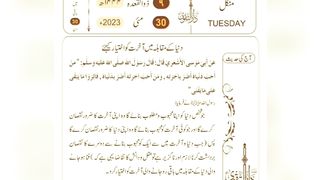 منگل ۹ ذوالقعدہ ۱۴۴۴ھ
TUESDAY 30 مئی 2023ء
30
دنیا کے مقابلہ میں آخرت کو اختیار کیجئے
آج کی حدیث
عن أبي موسى الأشعري قال: قال رسول الله صلى الله عليه وسلم: "من
أحب دنياه أضر بآخرته، ومن أحب آخرته أضر بدنياه، فآثروا ما يبقى
على ما يفنى"
رسول اللہ ﷺ نے فرمایا
جو شخص دنیا کو اپنا محبوب و مطلوب بنائے گا وہ اپنی آخرت کا ضرور نقصان
کرے گا اور جو کوئی آخرت کو محبوب بنائے گا وہ اپنی دنیا کا ضرور نقصان کرے گا
پس جب دنیا و آخرت میں سے ایک کو محبوب بنانے سے دوسرے کا نقصان
برداشت کرنا لازم اور ناگزیر ہے تو عقل و دانش کا تقاضا یہی ہے کہ فنا ہو جانے
والی دنیا کے مقابلہ میں باقی رہ جانے والی آخرت کو اختیار کرو۔